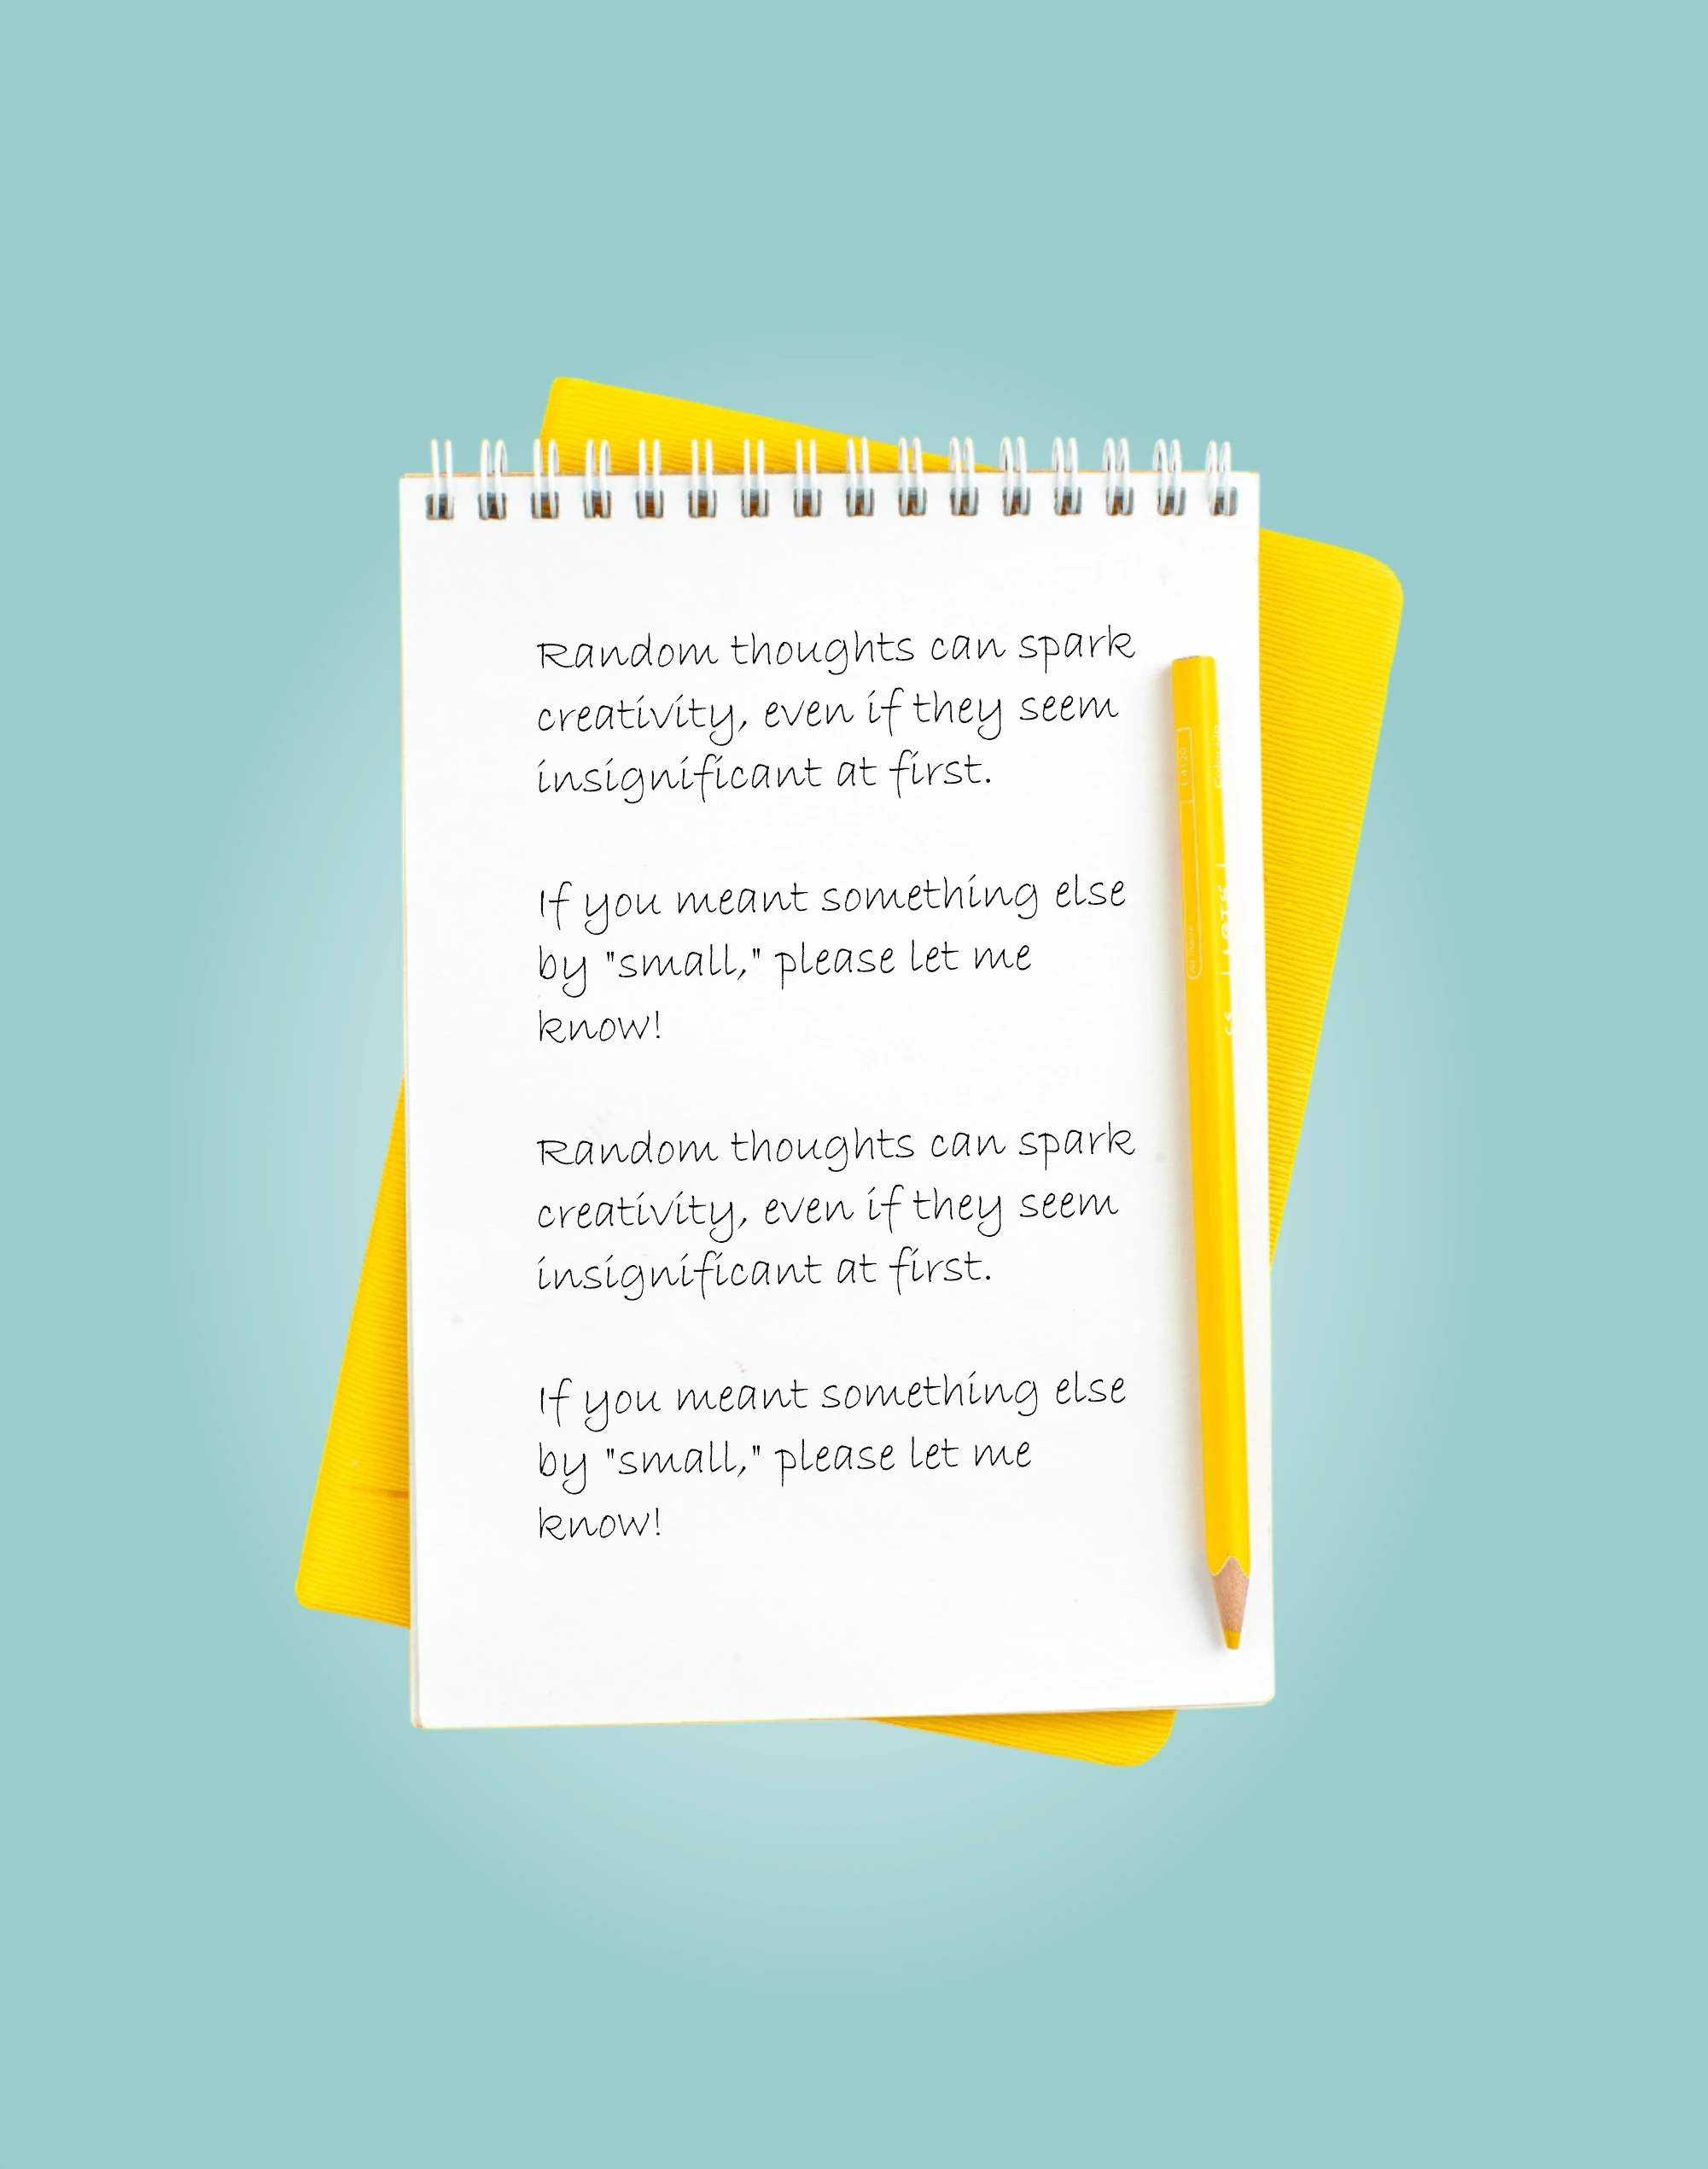 Random thoughts can spark
creativity, even if they seem
insignificant at first.
If you meant something else
by "small," please let me
know!
Random thoughts can spark
creativity, even if they seem
insignificant at first.
If you meant something else
by "small," please let me
know!